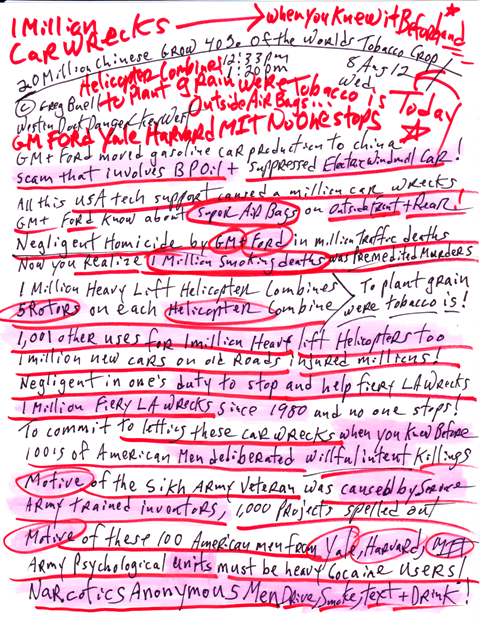 1 Million
Car Wrecks → when you knew it Beforehand
20 Million Chinese Grow 40% of the Worlds Tobacco Crop!
Helicopter Combines 12:33pm
1:20pm
8 Aug 12
Wed
© Greg Buell to Plant Grain Were Tobacco is Today
Westin Dock Danger Key West Outside Air Bags...
GM Ford Yale Harvard MIT No One stops
GM + Ford moved gasoline car production to china
scam that involves BP Oil + suppressed Electric windmill Car!
All this USA tech support caused a million car wrecks
GM + Ford know about Super Air Bags on outside Front + Rear!
Negligent Homicide by GM + Ford in million Traffic deaths
Now you realize 1 Million Smoking deaths was Premedited Murders
1 Million Heavy Lift Helicopter Combines
5 Rotors on each Helicopter Combine
To plant grain
were tobacco is!
1,001 other uses for 1 million Heavy lift Helicopters too
1 million new cars on old Roads injured millions!
Negligent in one's duty to stop and help fiery LA wrecks
1 Million Fiery LA wrecks since 1980 and no one stops!
To commit to letting these car wrecks when you knew Before
100's of American Men deliberated willful intent Killings
Motive of the Sikh Army Veteran was caused by
Army trained inventors, 1,000 Projects spelled out
Motive of these 100 American men from Yale, Harvard, MIT
Army Psychological units must be heavy Cocaine users!
Narcotics Anonymous Men Drive, Smoke, text + Drink!